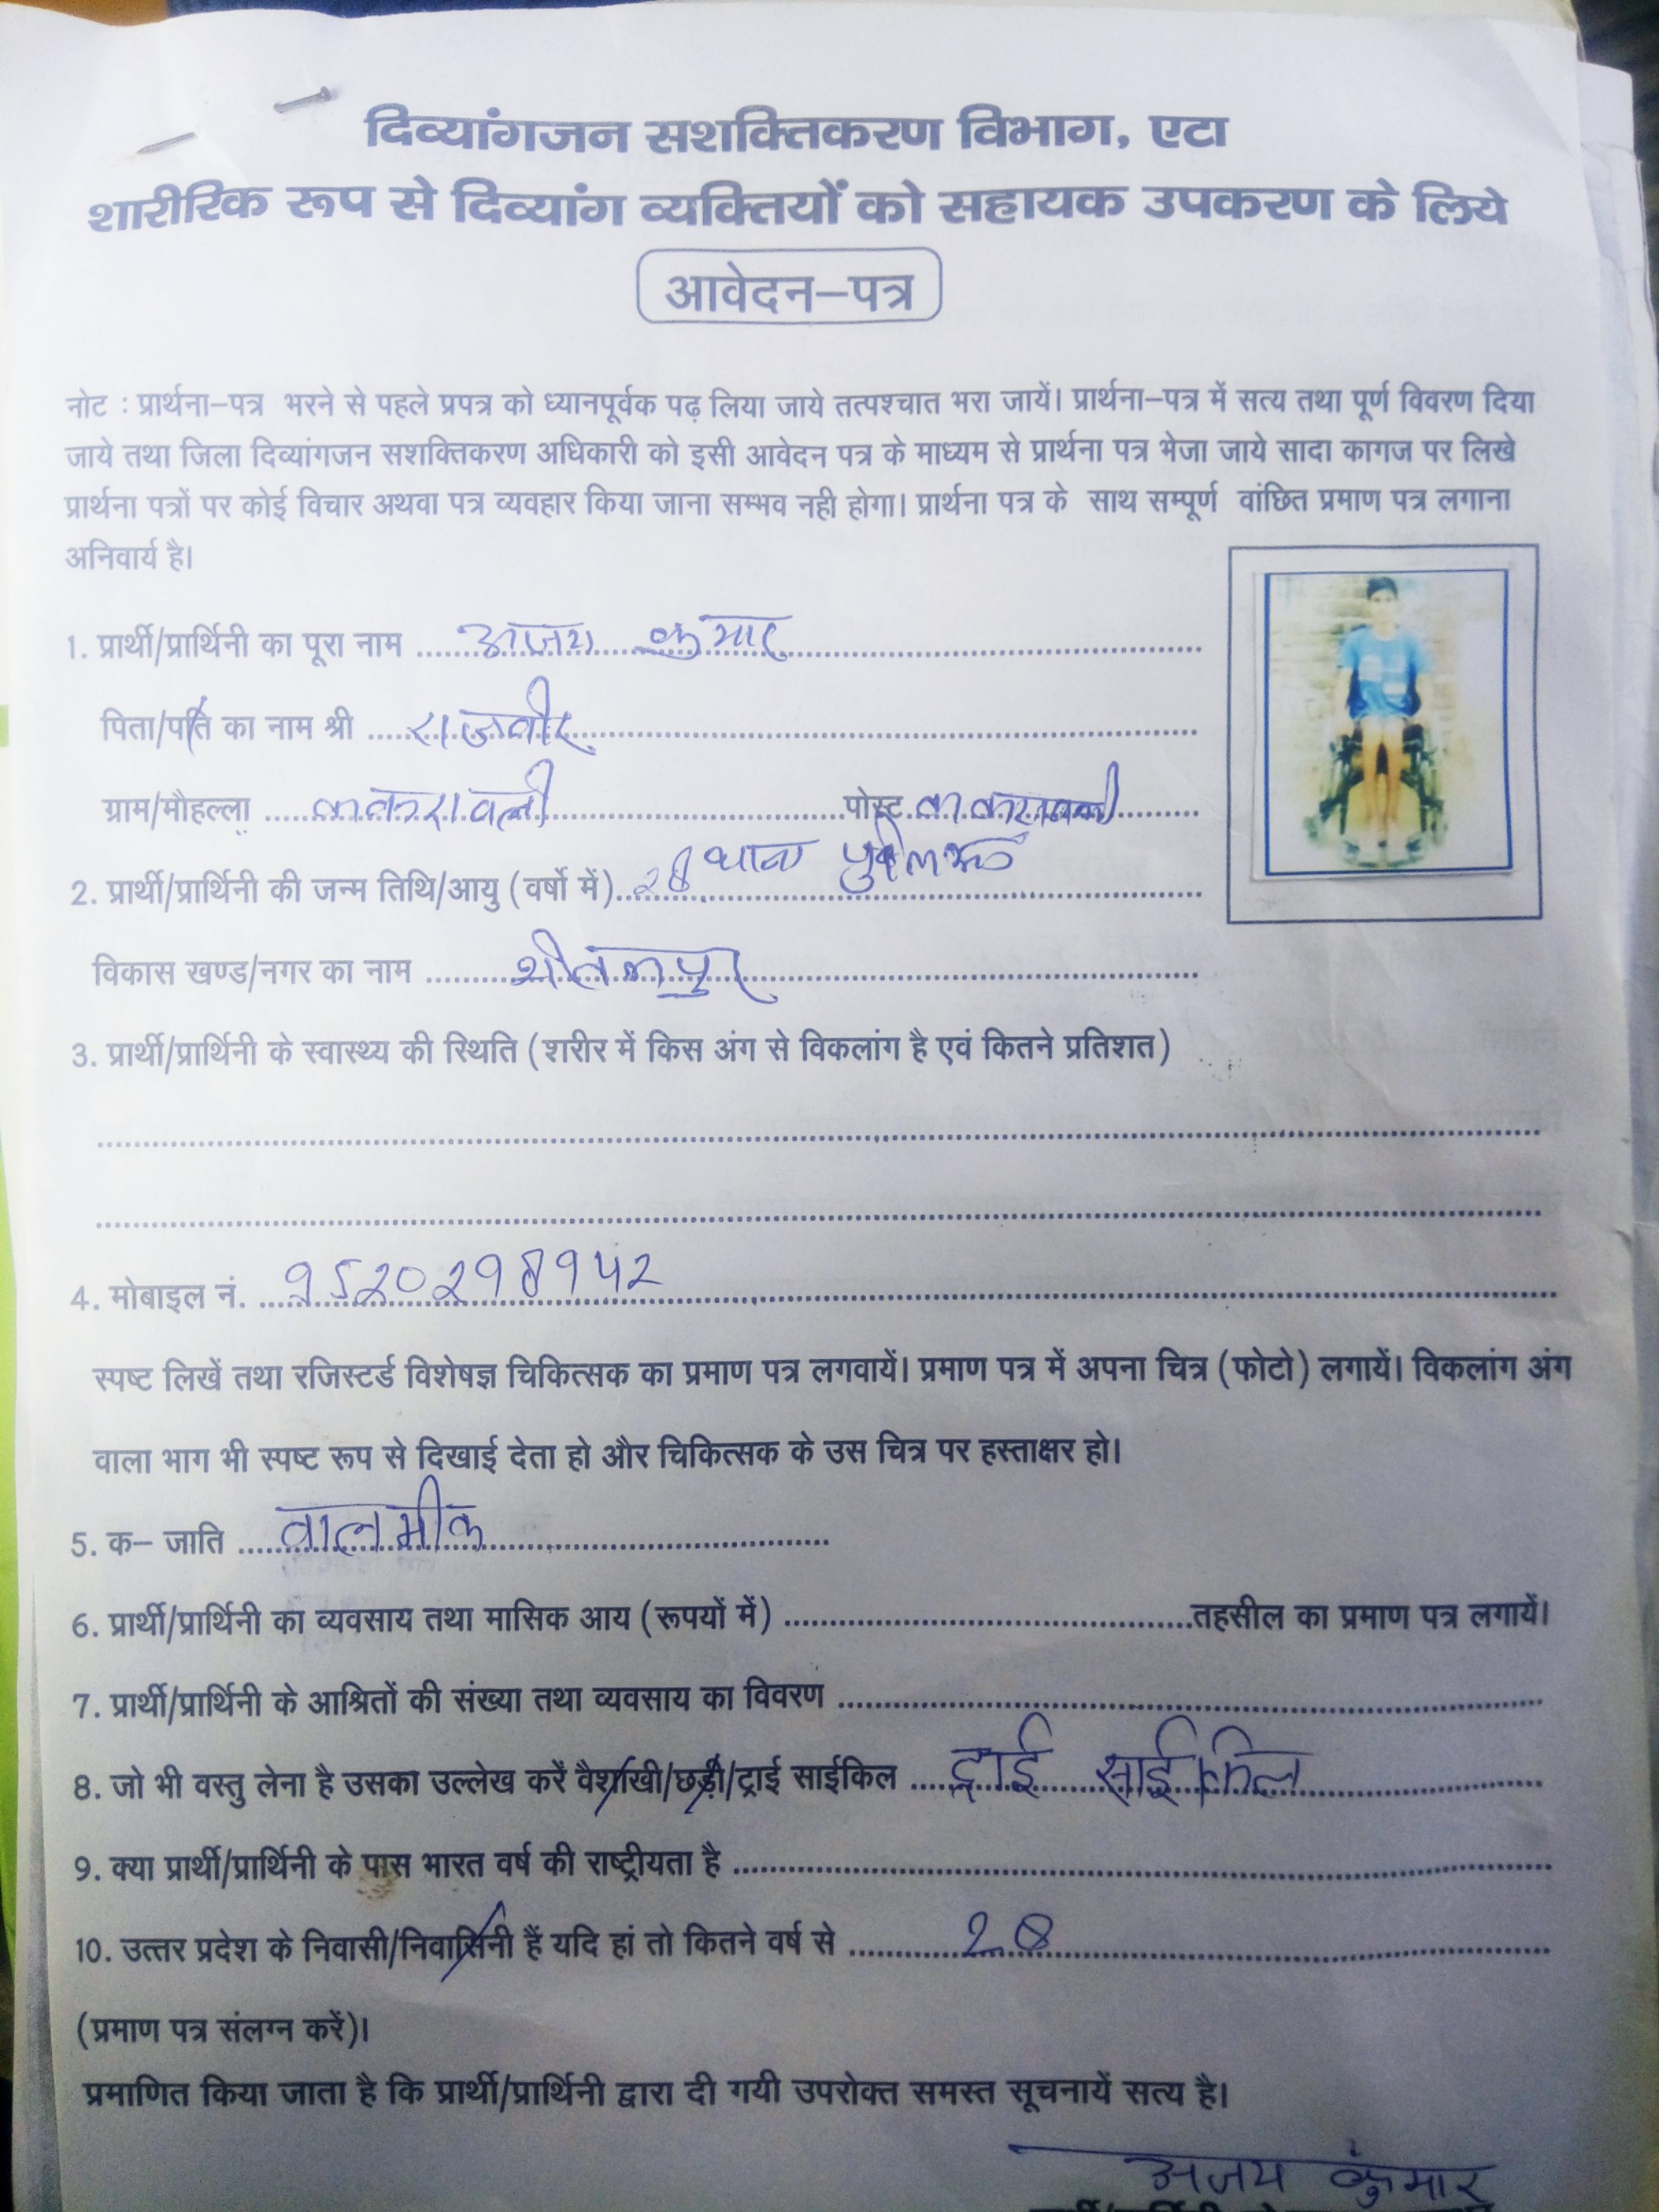 दिव्यांगजन सशक्तिकरण विभाग, एटा
शारीरिक रूप से दिव्यांग व्यक्तियों को सहायक उपकरण के लिये
आवेदन–पत्र
नोट : प्रार्थना–पत्र भरने से पहले प्रपत्र को ध्यानपूर्वक पढ़ लिया जाये तत्पश्चात भरा जायें। प्रार्थना–पत्र में सत्य तथा पूर्ण विवरण दिया
जाये तथा जिला दिव्यांगजन सशक्तिकरण अधिकारी को इसी आवेदन पत्र के माध्यम से प्रार्थना पत्र भेजा जाये सादा कागज पर लिखे
प्रार्थना पत्रों पर कोई विचार अथवा पत्र व्यवहार किया जाना सम्भव नही होगा। प्रार्थना पत्र के साथ सम्पूर्ण वांछित प्रमाण पत्र लगाना
अनिवार्य है।
1. प्रार्थी/प्रार्थिनी का पूरा नाम अजय कुमार
पिता/पति का नाम श्री राजवीर
ग्राम/मौहल्ला ककरावली पोस्ट ककरावली
थाना
2. प्रार्थी/प्रार्थिनी की जन्म तिथि/आयु (वर्षो में) 28
विकास खण्ड/नगर का नाम शीतलपुर
3. प्रार्थी/प्रार्थिनी के स्वास्थ्य की स्थिति (शरीर में किस अंग से विकलांग है एवं कितने प्रतिशत)
4. मोबाइल नं.
स्पष्ट लिखें तथा रजिस्टर्ड विशेषज्ञ चिकित्सक का प्रमाण पत्र लगवायें। प्रमाण पत्र में अपना चित्र (फोटो) लगायें। विकलांग अंग
वाला भाग भी स्पष्ट रूप से दिखाई देता हो और चिकित्सक के उस चित्र पर हस्ताक्षर हो।
5. क– जाति वालमीक
6. प्रार्थी/प्रार्थिनी का व्यवसाय तथा मासिक आय (रूपयों में) तहसील का प्रमाण पत्र लगायें।
7. प्रार्थी/प्रार्थिनी के आश्रितों की संख्या तथा व्यवसाय का विवरण
8. जो भी वस्तु लेना है उसका उल्लेख करें वैशाखी/छड़ी/ट्राई साईकिल ट्राई साईकिल
9. क्या प्रार्थी/प्रार्थिनी के पास भारत वर्ष की राष्ट्रीयता है
10. उत्तर प्रदेश के निवासी/निवासिनी हैं यदि हां तो कितने वर्ष से 28
(प्रमाण पत्र संलग्न करें)।
प्रमाणित किया जाता है कि प्रार्थी/प्रार्थिनी द्वारा दी गयी उपरोक्त समस्त सूचनायें सत्य है।
अजय कुमार